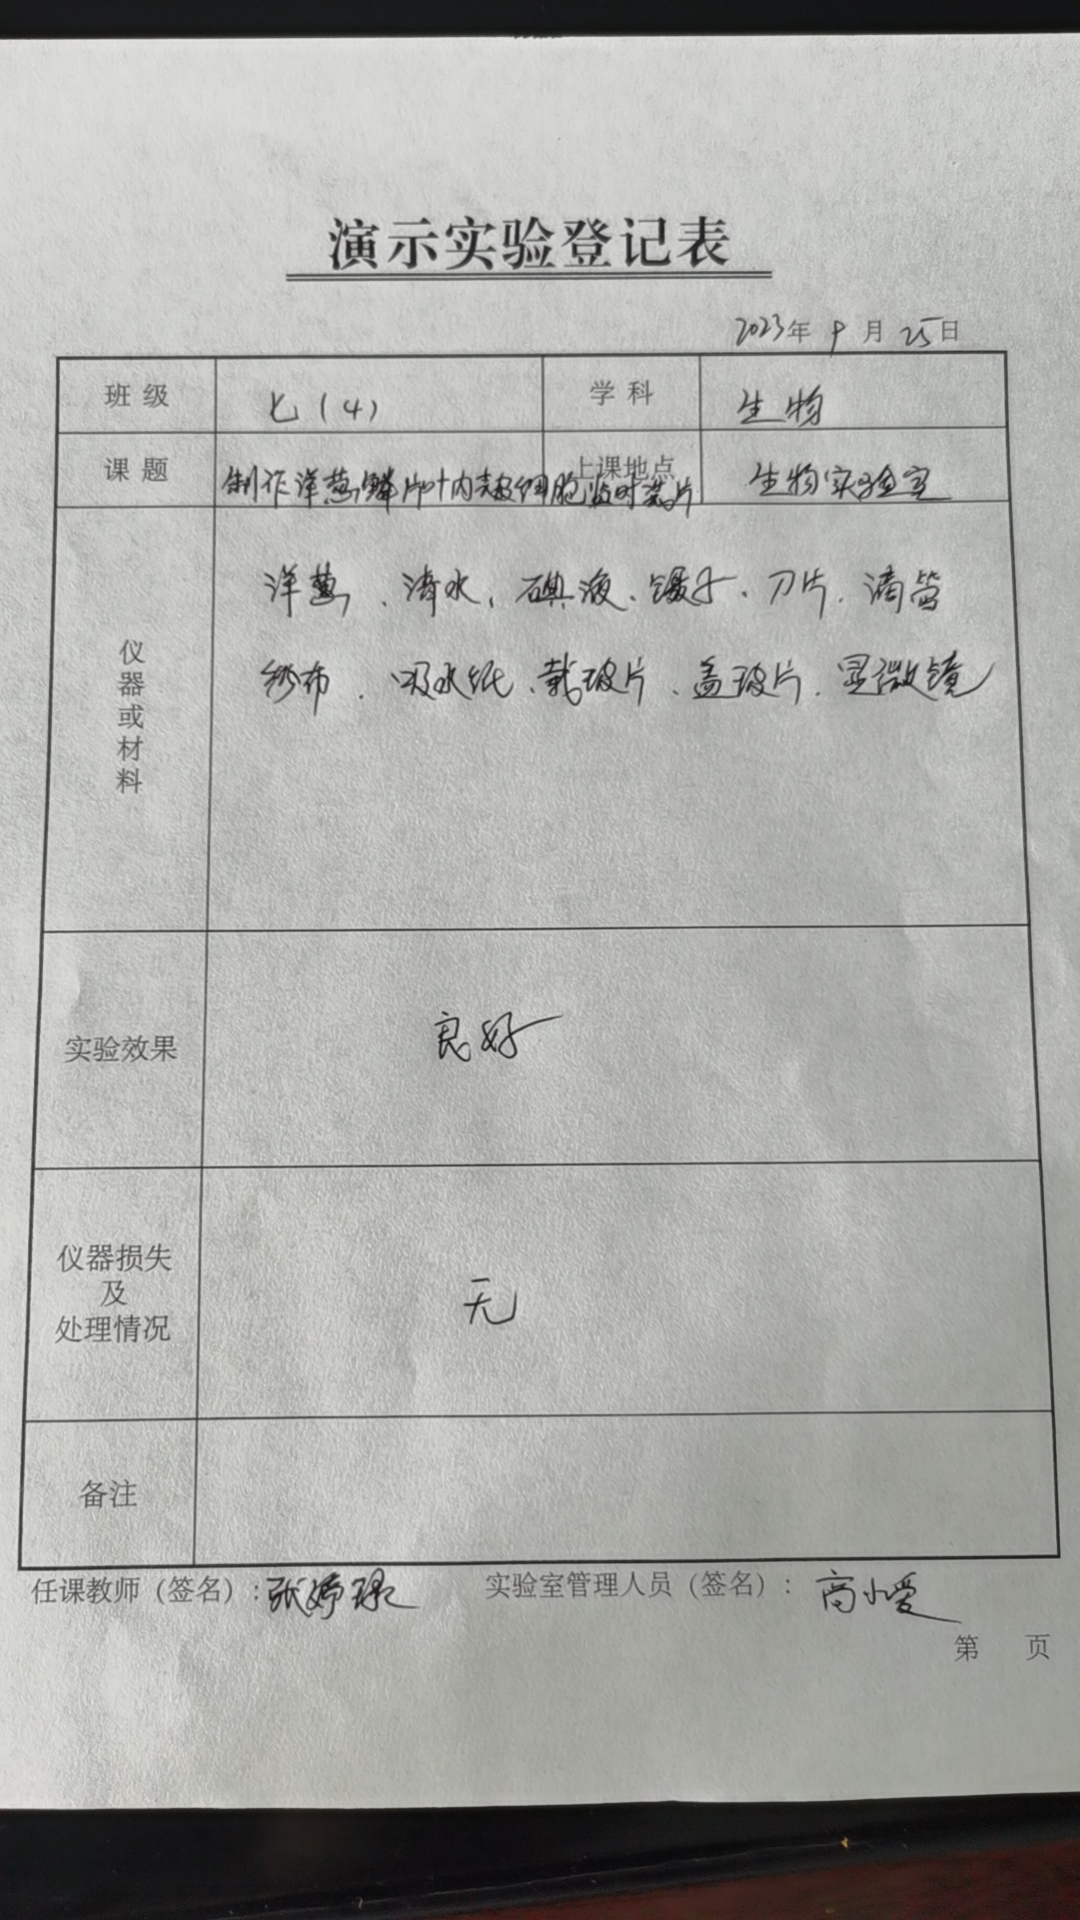 演示实验登记表
2023年 9月 25日
班级 七(4) 学科 生物
课题 制作洋葱鳞片叶内表皮细胞临时装片 上课地点 生物实验室
仪器或材料
洋葱、清水、碘液、镊子、刀片、滴管
纱布、吸水纸、载玻片、盖玻片、显微镜
实验效果 良好
仪器损失
及
处理情况
无
备注
任课教师(签名):张婷 实验室管理人员(签名): 高小爱
第 页